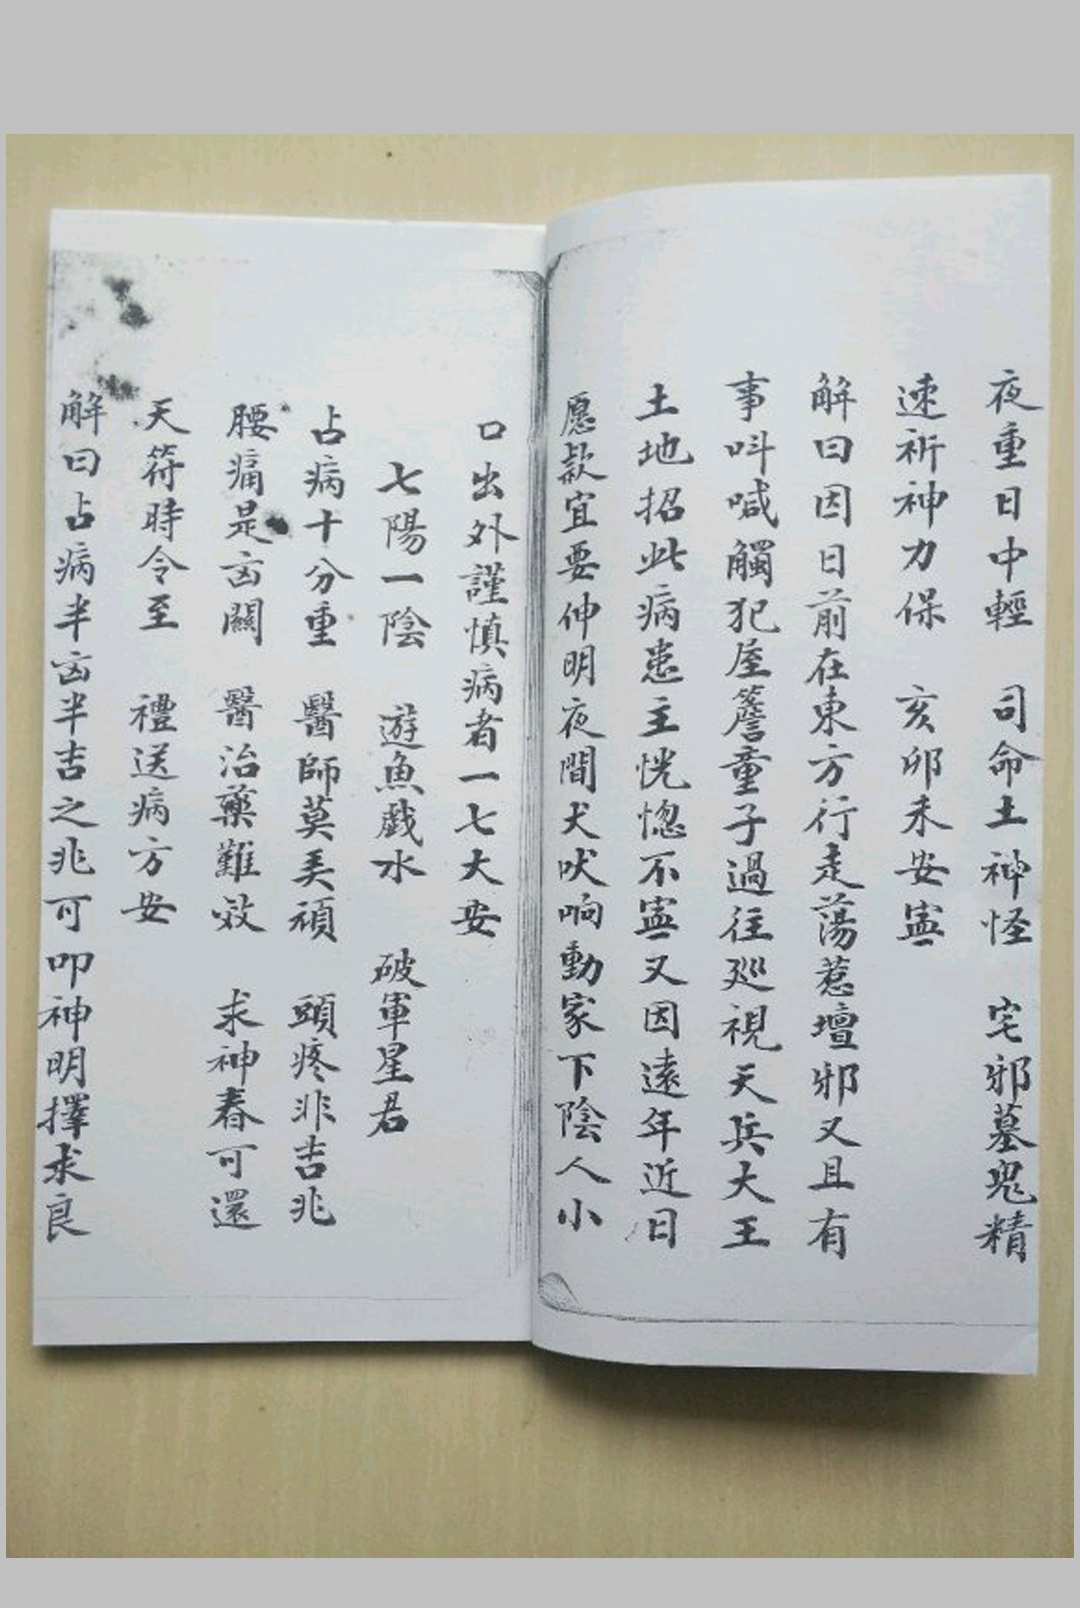 夜重日中輕　司命土神怪　宅邪墓鬼精
速祈神力保　亥卯未安寍
解曰因日前在東方行走蕩惹壇邪又且有
事呌喊觸犯屋簷童子過往廵視天兵大王
土地招此病患主恍惚不寍又因遠年近日
愿欵宜要伸明夜間犬吠响動家下陰人小
口出外謹慎病者一七大安
七陽一陰　遊魚戲水　破軍星君
占病十分重　醫師莫美頑　頭疼非吉兆
腰痛是㐫關　醫治藥難效　求神春可還
天符時令至　禮送病方安
解曰占病半㐫半吉之兆可叩神明擇求良